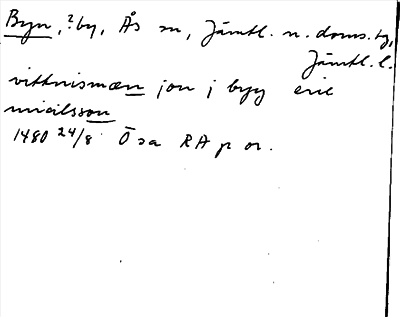 Byn, ?by, Ås sn, Jämtl. n. doms. tg,
Jämtl. l.
vittnismæn jon j byy eric
micilsson
1480 24/8 Ösa RA p or.